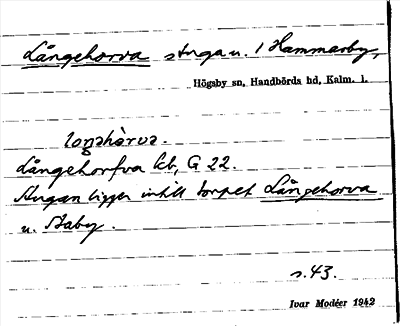 Långehorva stuga u. 1 Hammarby,
Högsby sn, Handbörds hd, Kalm. l.
loŋəhòrva.
Långehorfva kb, G 22.
Stugan ligger intill torpet Långehorva
u. Staby.
s. 43.
Ivar Modéer 1942